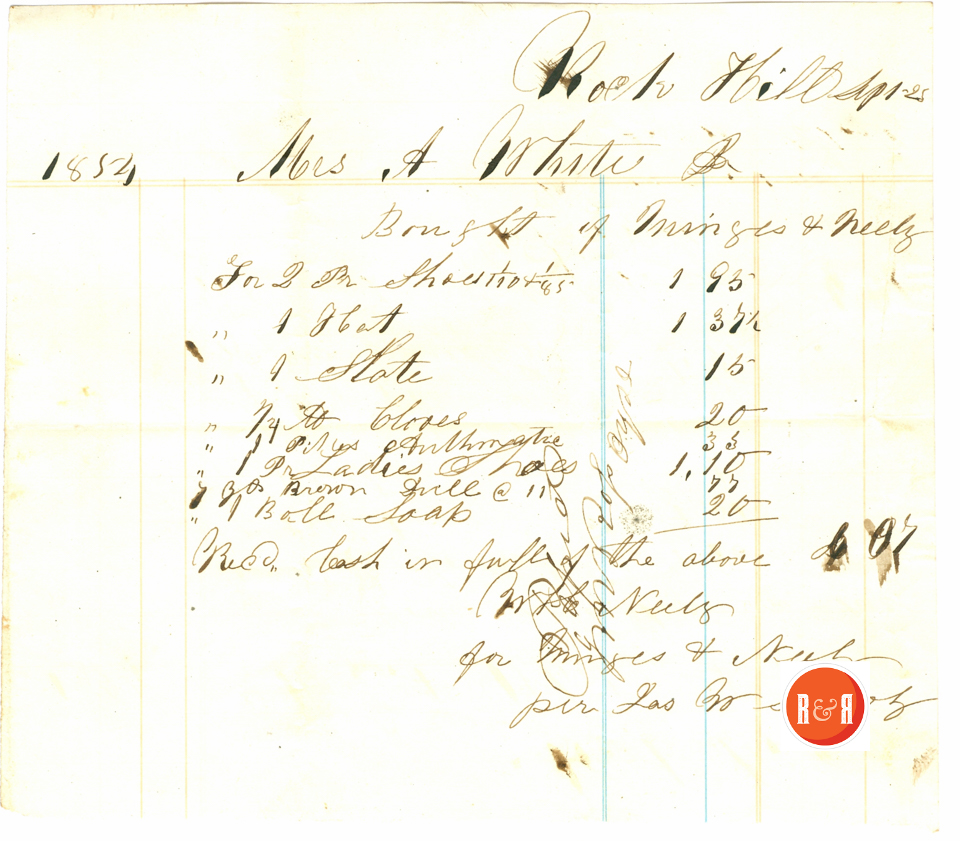 Rock Hill Sept 25
1854 Mrs A White Dr
Bought of Minges & Neely
For 2 Pr Shoes 1.10 & .85 1 95
" 1 Hat 1 37½
" 1 Slate 15
" 1/4 lb Cloves 20
" 1 Arithmatic 33
" 1 Pr Ladies Shoes 1,10
" Brown Drill @ 11 77
" 1 Boll Soap 20
Recd. Cash in full of the above 6 07
Neely
for Minges & Neely
per Jas
R&R